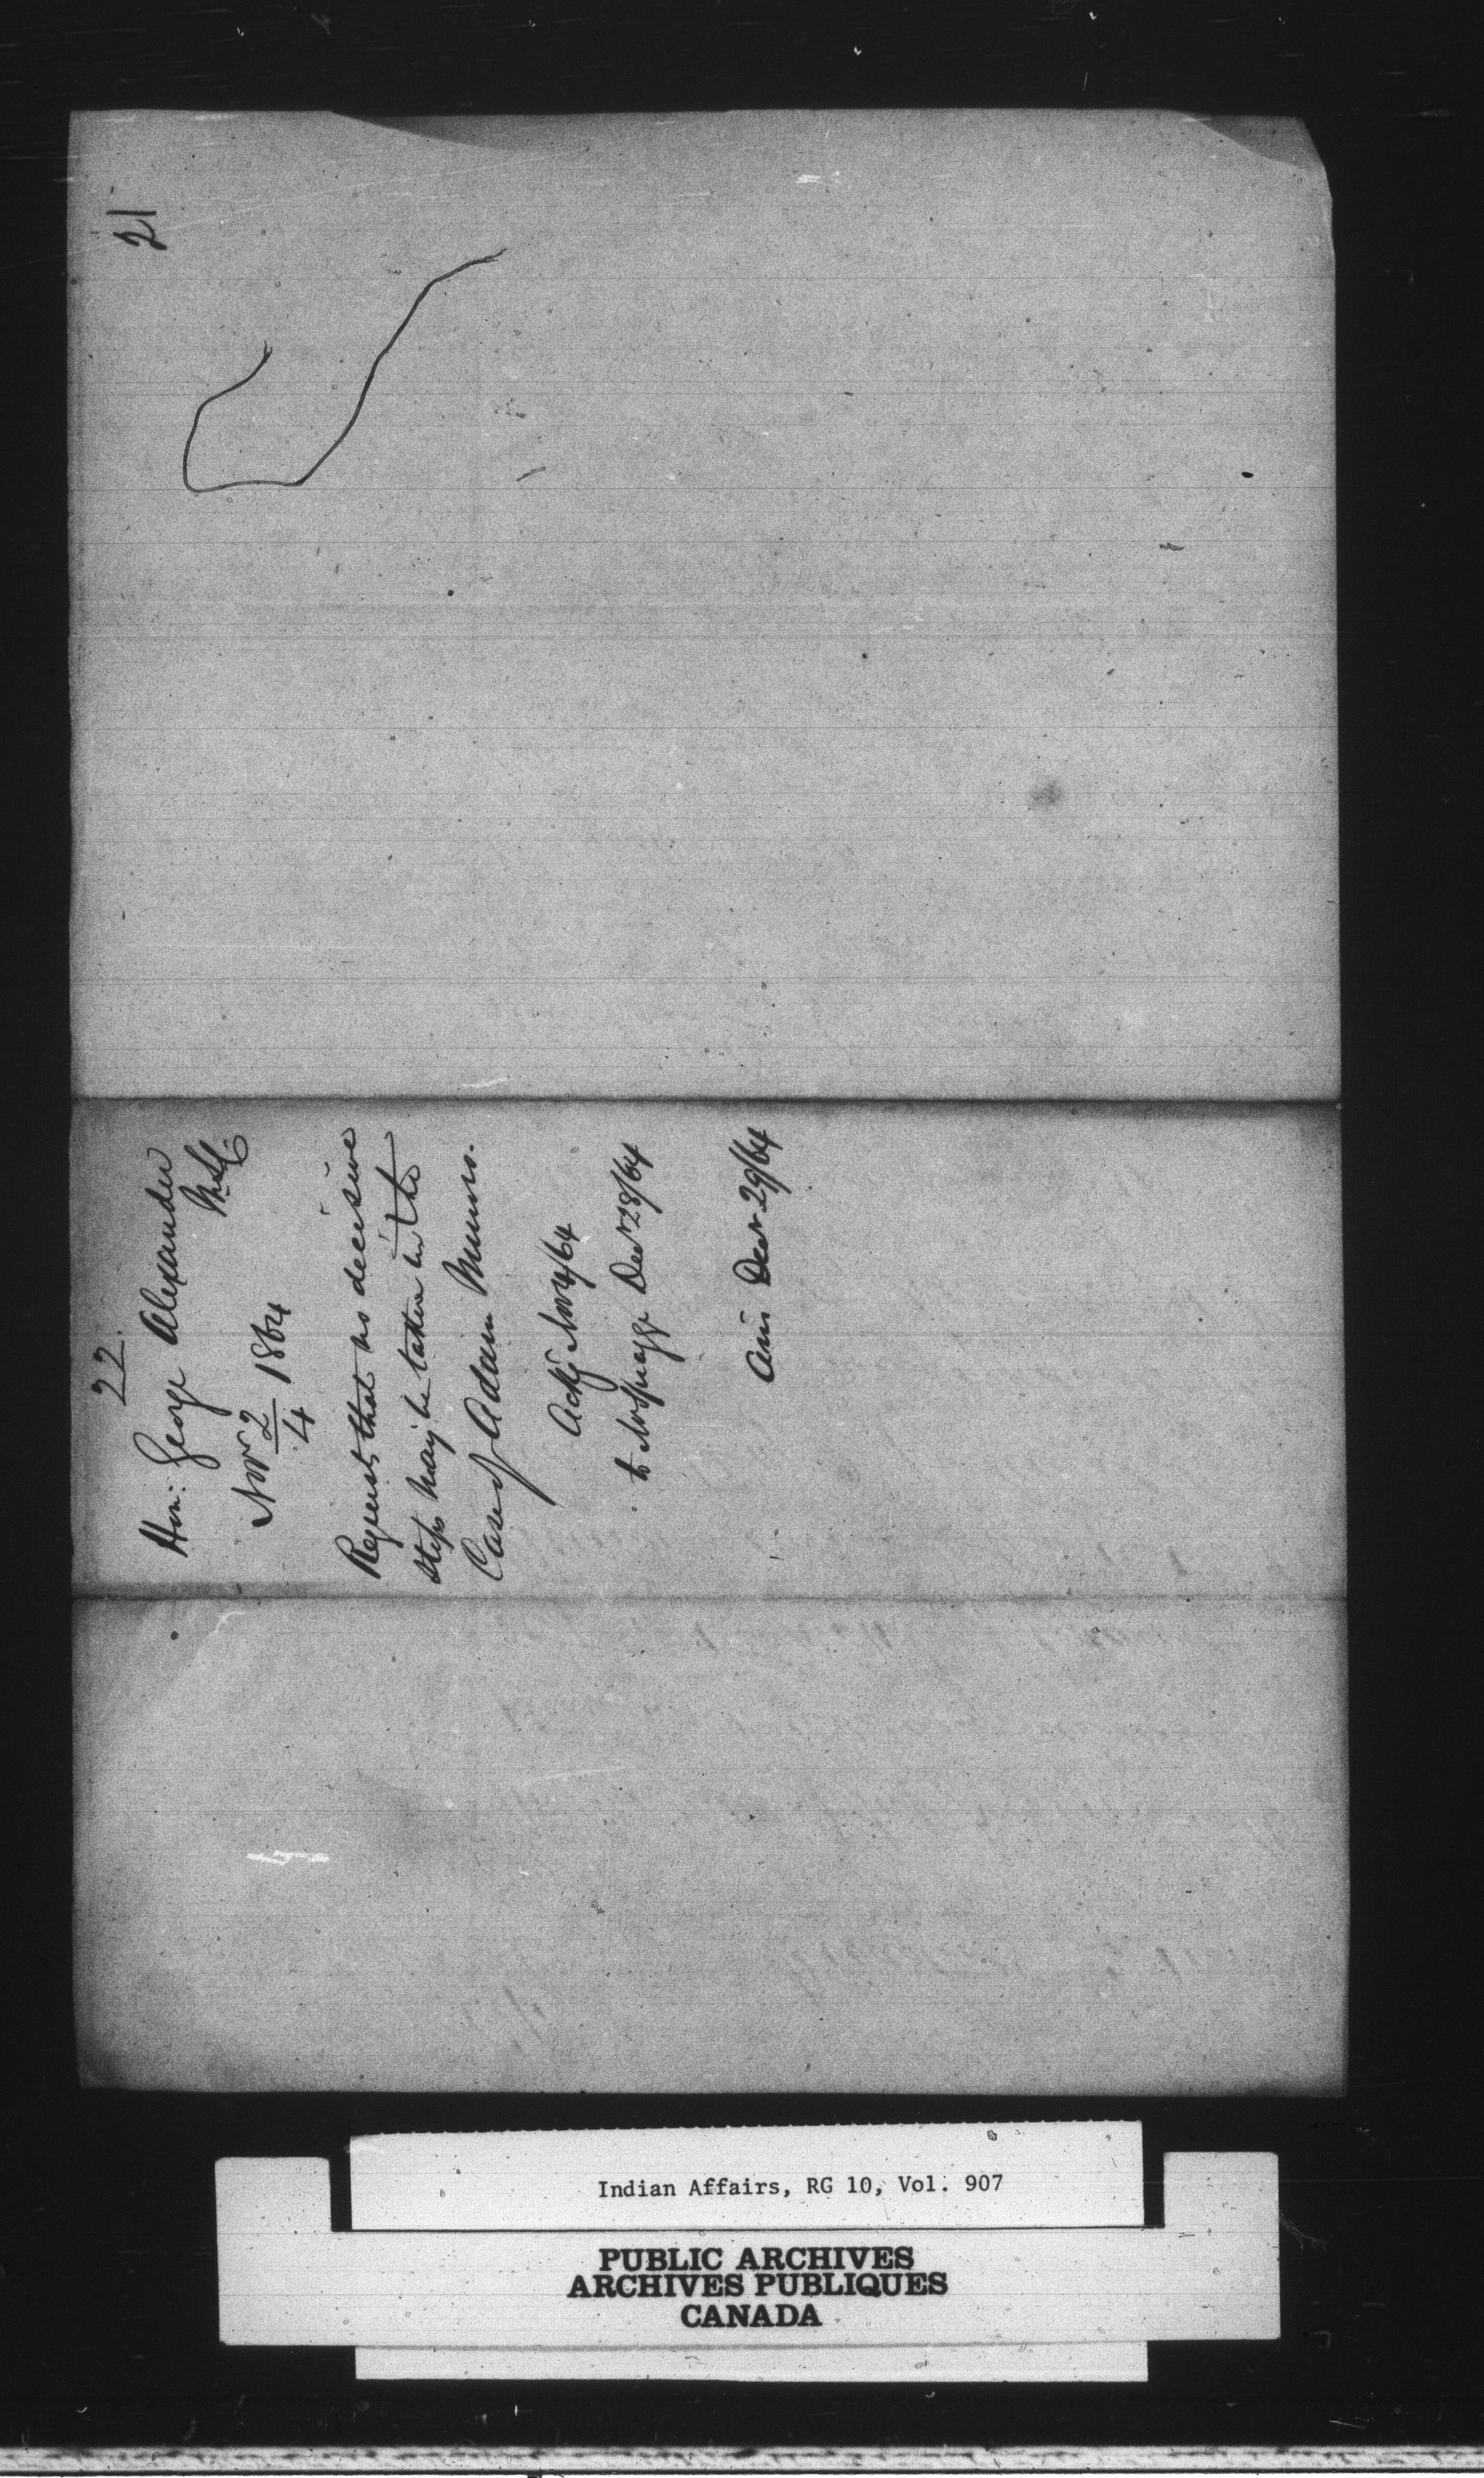 21
22
Hon: George Alexander
MLC
Novr 2/4 1864
Request that no decisive
steps may be taken in the
Case of Adam Munro.
Ackg Nov 4/64
to Mr Spragge Decr 28/64
Ans Decr 29/64
Indian Affairs, RG 10, Vol. 907
PUBLIC ARCHIVES
ARCHIVES PUBLIQUES
CANADA